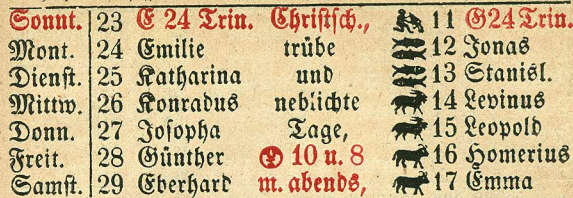 Sonnt. 23 E 24 Trin. Christsch., 11 G24 Trin.
Mont. 24 Emilie trübe 12 Jonas
Dienst. 25 Katharina und 13 Stanisl.
Mittw. 26 Konradus neblichte 14 Levinus
Donn. 27 Josopha Tage, 15 Leopold
Freit. 28 Günther 10 u. 8 16 Homerius
Samst. 29 Eberhard m. abends, 17 Emma